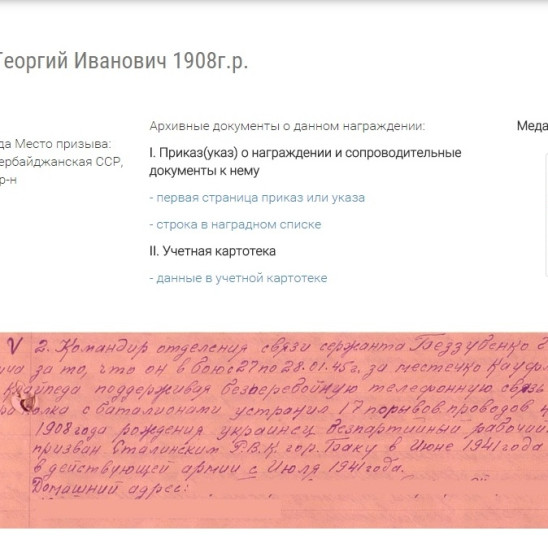 Георгий Иванович 1908г.р.
да Место призыва:
ербайджанская ССР,
р-н
Архивные документы о данном награждении:
I. Приказ(указ) о награждении и сопроводительные
документы к нему
- первая страница приказ или указа
- строка в наградном списке
II. Учетная картотека
- данные в учетной картотеке
Меда
V 2. Командир отделения связи сержанта Беззубенко Г
за то, что он в бою с 27 по 28.01.45г. за местечко
поддерживая бесперебойную телефонную связь
полка с баталионами устранил 17 порывов проводов
1908 года рождения украинец беспартийный рабочий
призван Сталинским Р.В.К. гор. Баку в Июне 1941 года
в действующей армии с Июля 1941 года.
Домашний адрес: